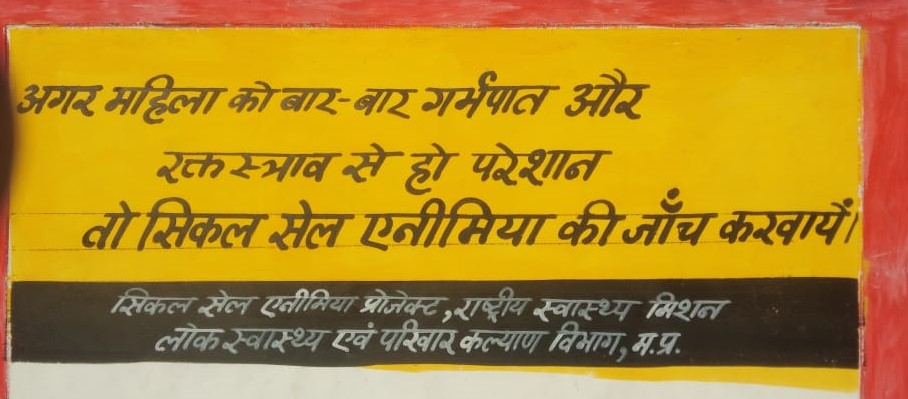 अगर महिला को बार-बार गर्भपात और
रक्त स्त्राव से हो परेशान
तो सिकल सेल एनीमिया की जाँच करवायें।
सिकल सेल एनीमिया प्रोजेक्ट, राष्ट्रीय स्वास्थ्य मिशन
लोक स्वास्थ्य एवं परिवार कल्याण विभाग, म.प्र.